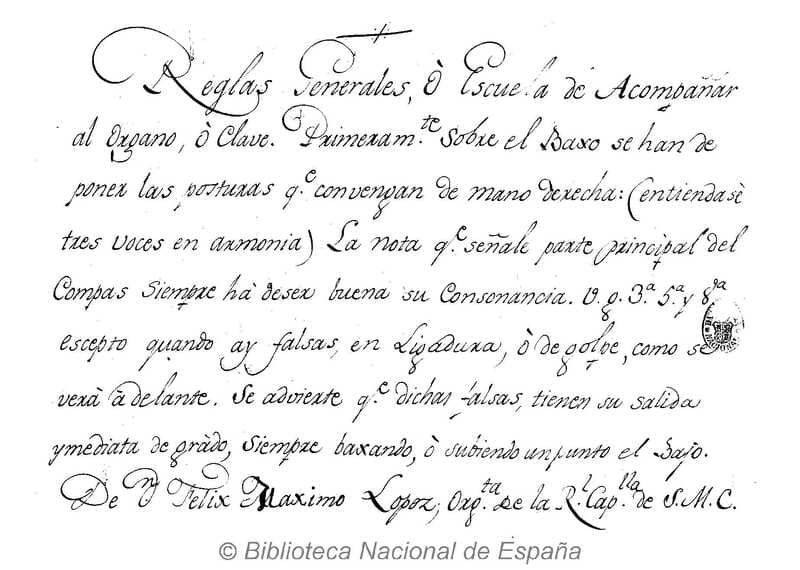 Reglas Generales, ò Escuela de Acompañar
al Organo, ò Clave. Primeram.te Sobre el Baxo se han de
poner las posturas q.e convengan de mano derecha: (entiendasè
tres voces en armonia) La nota q.e señale parte principal del
Compas Siempre hà deser buena su Consonancia. V. g. 3.a 5.a y 8.va
escepto quando ay falsas, en Ligadura, ò de golpe, como se
verà àdelante. Se advierte q.e dichas falsas, tienen su salida
ymediata de gràdo, Siempre baxando, ò subiendo un punto el Bajo.
De D.n Felix Maximo Lopez, Org.ta de la R.l Cap.lla de S. M. C.
© Biblioteca Nacional de España